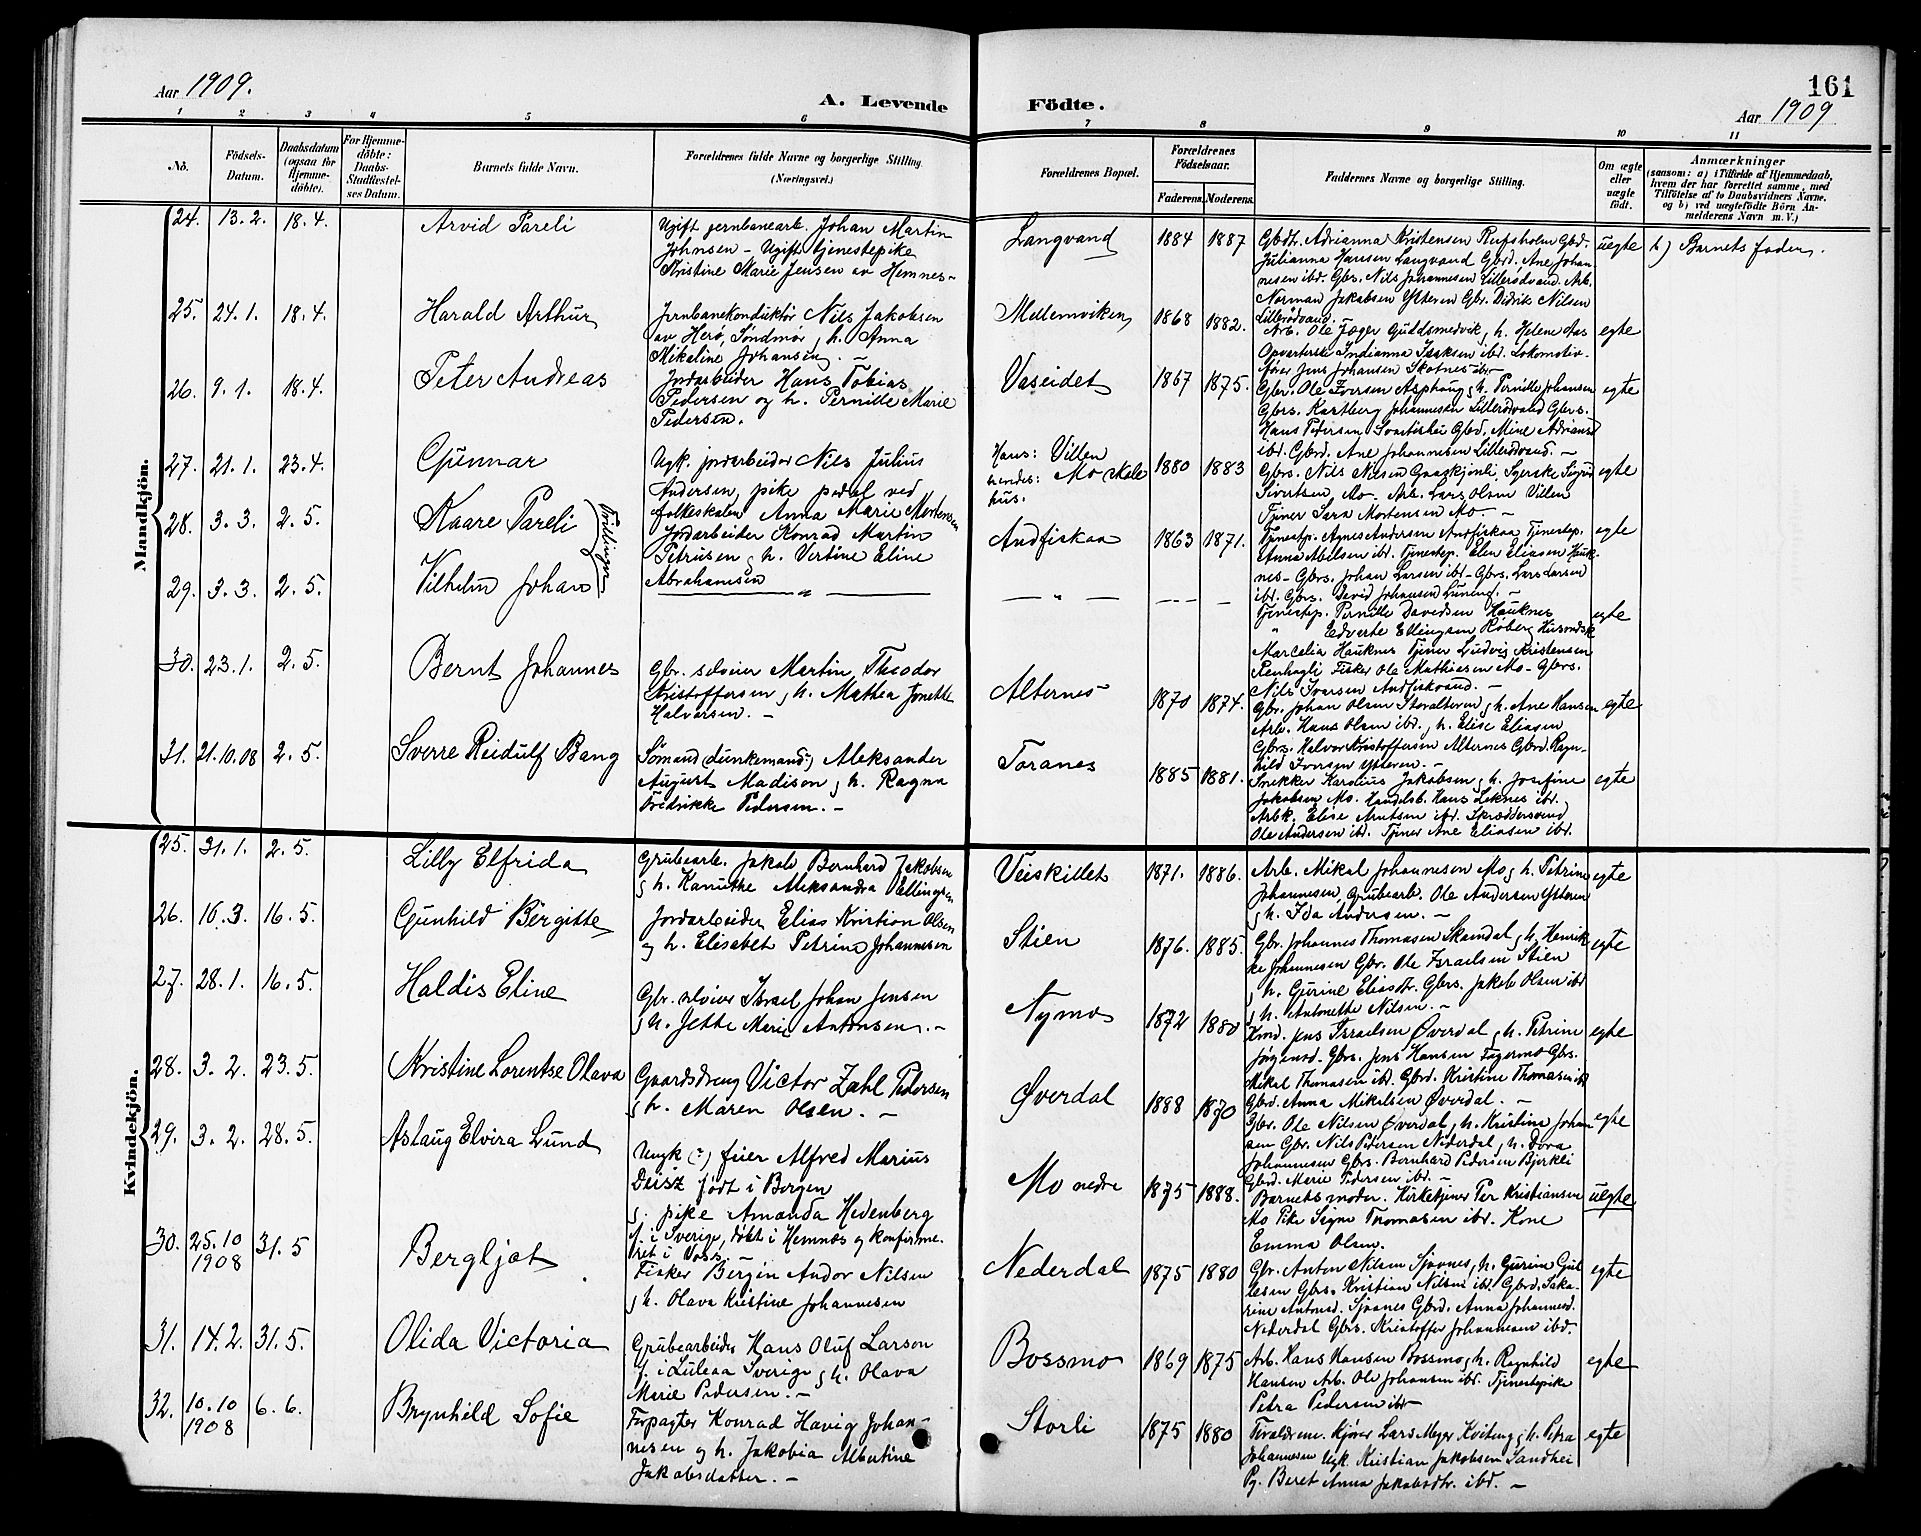 Aar 1909.
A. Levende Födte.
161
Aar 1909
1 2 3 4 5 6 7 8 9 10 11
No.
Födsels-
Datum.
Daabsdatum
(ogsaa for
Hjemme-
döbte).
For Hjemme-
döbte:
Daabs-
Stadfæstel-
ses Datum.
Barnets fulde Navn.
Forældrenes fulde Navne og borgerlige Stilling.
(Næringsvei.)
Forældrenes Bopæl.
Forældrenes
Födselsaar.
Faderens. Moderens.
Faddernes Navne og borgerlige Stilling.
Om ægte
eller
uægte
födt.
Anmærkninger
(saasom: a) i Tilfælde af Hjemmedaab,
hvem der har forrettet samme, med
Tilföielse af to Daabsvidners Navne,
og b) ved uægtefödte Börn An-
melderens Navn m. V.)
Mandkjön.
24. 13.2. 18.4. Arvid Pareli
Ugift jernbanearb. Johan Martin
Johnsen - Ugift tjenestepike
Kristine Marie Jensen av Hemnes-
Langvand 1884 1887
Gbdtr. Adrianna Kristensen Reifsholm Gbd.
Julianna Hansen Langvand Gbrd. Ane Johan
nesen ibd. Gbr. Nils Johannesen Lillerödvand. Arb.
Norman Jakobsen Ytteren Gbr. Didrik Nilsen
Lillerödvand.
uegte
b.) Barnets fader.
25. 24.1. 18.4. Harald Arthur
Jernbanekonduktör Nils Jakobsen
av Herö, Söndmör, h. Anna
Mikaline Johansen. -
Mellemviken 1868 1882.
Arb. Ole Jæger Guldsmedvik, h. Helene Aas
Opvarterske Indianna Isaksen ibd. Lokomotiv-
förer Jens Johansen Skotnes ibd.
egte
26. 9.1. 18.4. Peter Andreas
Jordarbeider Hans Tobias
Pedersen og h. Pernille Marie
Pedersen.
Vaseidet 1867 1875.
Gbr. Ole Iversen Asphaug, h. Pernille Johansen
Gbrs. Kartberg Johannesen Lillerödvand Gbrs.
Hans Pedersen Gbd. Mine Adrians
ibd. Gbrd. Ane Johannesen Lillerödvand. -
egte
27. 21.1. 23.4. Gunnar
Ugk. jordarbeider Nils Julius
Andersen, pike pedel ved
folkeskolen Anna Marie Mortensen
Hans: Villen
hendes: Mo skole
hus.
1880 1883
Gbrs. Nils Nilsen Syerske Sigrid
Sivertsen Mo- Arb. Lars Olsen Villen
Tjener Sara Mortensen Mo-
egte
28. 3.3. 2.5. Kaare Pareli
Tvillinger
Jordarbeider Konrad Martin
Petrusen, h. Vertine Eline
Abrahamsen
Andfiskaa 1863 1871.
Tjenestp. Agnes Andersen Andfiskaa Tjenestep.
Anna Abelsen ibd. Tjenestep. Elen Eliasen Hauk-
nes- Gbrs. Johan Larsen ibd- Gbrs. Lars Larsen
ibd. Gbrs. David Johansen -
egte
29. 3.3. 2.5. Vilhelm Johan
— " —
— " — — - - —
Tjenestep. Pernille Davidsen Hauknes
" Edverte Ellingsen Röberg Husmdsk
Marcelia Hauknes Tjener Ludvig Kristensen
Fisker Ole Mathiesen Mo- Gbrs.
Nils Ivarsen Andfiskvand. -
egte
30. 23.1. 2.5. Bernt Johannes
Gbr. selveier Martin Theodor
Kristoffersen, h. Mathea Jonette
Halvorsen. -
Alternes 1870 1874.
Gbr. Johan Olsen Storalteren, h. Ane Hansen
Arb. Hans Olsen ibd., h. Elise Eliasen
Gbrs. Halvor Kristoffersen Alternes Gbrd. Ragn-
hild Iversen Ytteren. -
egte
31. 21.10.08 2.5. Sverre Reidulf Bang
Sömand (dunkemand?) Aleksander
August Madison, h. Ragna
Fredrikke Pedersen. -
Toranes 1885 1881.
Snekker Karolius Jakobsen, h. Josefine
Jakobsen Mo. Handelsb. Hans Leknes ibd.
Arbk. Elise Arntsen ibd. Skræddersvend
Ole Andersen ibd. Tjener Ane Eliasen ibd.
egte
Kvindekjön.
25. 31.1. 2.5. Lilly Elfrida
Grubearb. Jakob Bernhard Jakobsen
, h. Kanuthe Aleksandra Ellingsen
Veiskillet 1871. 1886.
Arb. Mikal Johannesen Mo, h. Petrine
Johannesen, Grubearb. Ole Andersen Ytteren
, h. Ida Andersen. -
egte
26. 16.3. 16.5. Gunhild Bergitte
Jordarbeider Elias Kristian Olsen
og h. Elisabet Petrine Johannesen
Stien 1876. 1885.
Gbr. Johannes Thomasen Skamdal, h. Henrik
ke Johannesen Gbr. Ole Israelsen Stien
, h. Gurine Eliasdtr. Gbrs. Jakob Olsen ibd
, h. Antonette Nilsen. -
egte
27. 28.1. 16.5. Haldis Eline
Gbr. selveier Israel Johan Jensen
, h. Jette Marie Antonsen. -
Nymo 1872 1880
Kmd. Jens Israelsen Överdal, h. Petrine
Jörgensd. Gbrs. Jens Hansen Fagermo Gbrs.
Mikal Thomasen ibd. Gbrd. Kristine Thomasen ibd
Gbrd. Anna Mikelsen Överdal. -
egte
28. 3.2. 23.5. Kristine Lorentse Olava
Gaardsdreng Victor Zahl Pedersen
, h. Maren Olsen. -
Øverdal 1888 1870
Gbr. Ole Nilsen Överdal, h. Kristine Johan
sen Gbr. Nils Pedersen Nederdal, h. Dora
Johannesen Gbrs. Bernhard Pedersen Bjerkli
Gbrd. Marie Pedersen ibd. -
egte
29. 3.2. 28.5. Aslaug Elvira Lund
Ungk (?) feier Alfred Marius
Deisz født i Bergen
, pike Amanda Hedenberg
f. i Sverige, döbt i Hemnes og konfirme-
ret i Voss. -
Mo nedre 1875 1888.
Barnets moder. Kirketjener Per Kristiansen
Mo Pike Signe Thomasen ibd. Kone
Emma Olsen.
uegte
30. 25.10 1908 31.5 Bergljot
Fisker Bergin Andor Nilsen
, h. Olava Kristine Johannesen
Nederdal 1875 1880
Gbr. Anton Nilsen Sjonnes, h. Gurine Gul
lesen Gbrs. Kristian Nilsen ibd. Gbrd. Saka-
rine Antonsd. Sjonnes Gbrd. Anna Johannesd.
Nederdal Gbrs. Kristoffer Johannesen ibd.
egte
31. 14.2. 31.5. Olida Victoria
Grubearbeider Hans Oluf Larson
f. i Luleaa Sverige, h. Olava
Marie Pedersen. -
Bossmo 1869 1875
Arb. Hans Hansen Bossmo, h. Ragnhild
Hansen Arb. Ole Johansen ibd. Tjenestepike
Petra Pedersen ibd-
egte
32. 10.10 1908 6.6. Brynhild Sofie
Forpagter Konrad Havig Johan-
nesen og h. Jakobia Albertine
Jakobsdatter. -
Storli 1875 1880
Forældrene. Kjörer Lars Meyer Kviting, h. Petra
Johannesen Ugk. Kristian Jakobsen Sandhei
Pg. Beret Anna Jakobsdtr. ibd. -
egte